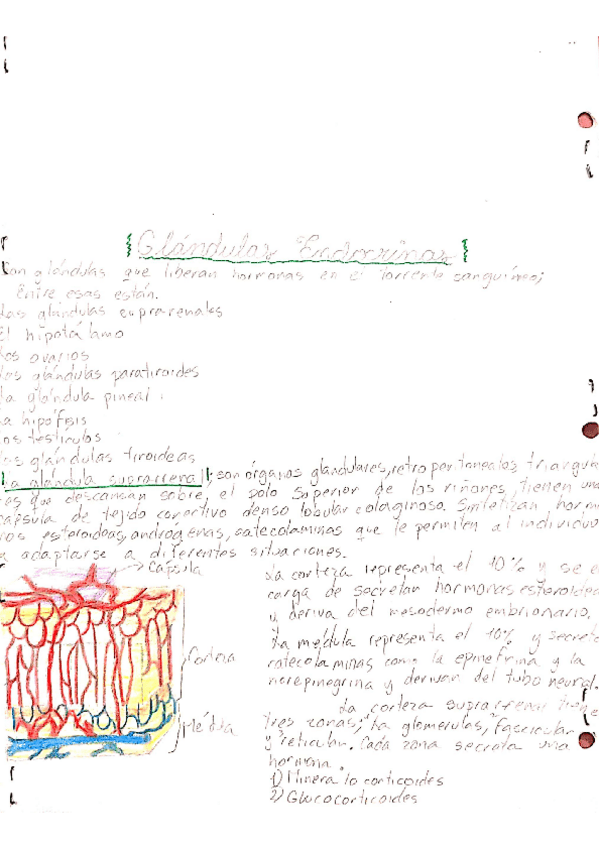 Glándulas Endocrinas
Son glándulas que liberan hormonas en el torrente sanguíneo;
Entre esas están.
Las glándulas suprarenales
El hipotálamo
Los ovarios
Las glándulas paratiroides
La glándula pineal.
La hipófisis
Los testículos
Las glándulas tiroideas
La glándula suprarrenal; son órganos glandulares, retroperitoneales, triangula
res que descansan sobre, el polo superior de los riñones, tienen una
capsula de tejido conectivo denso lobular colaginosa. Sintetizan hormo
nas esteroideas, andrógenas, catecolaminas que le permiten al individuo
a adaptarse a diferentes situaciones.
Capsula
Corteza
Médula
La corteza representa el 10% y se e
carga de secretan hormonas esteroidea
y deriva del mesodermo embrionario,
La medula representa el 10% y secreta
catecolaminas como la epinefrina y la
norepinegrina y derivan del tubo neural.
La corteza suprarrenal tiene
tres zonas; La glomerulas, fascicular
y reticular. Cada zona secreta una
hormona.
1) Minera lo corticoides
2) Glucocorticoides